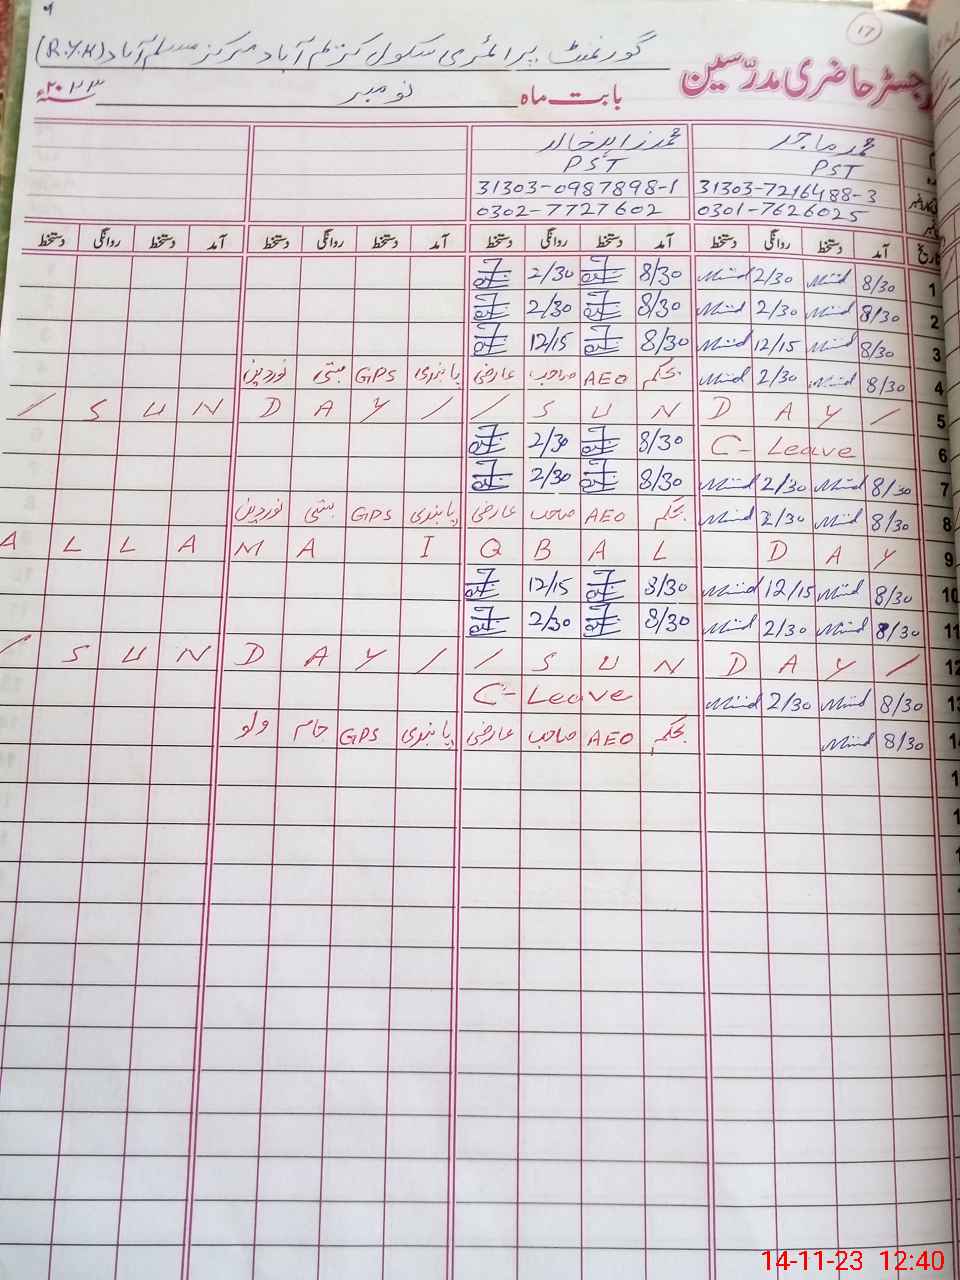 17
رجسٹر حاضری مدرّسین
گورنمنٹ پرائمری سکول کرم آباد مرکز مسلم آباد (R.Y.K)
بابت ماہ نومبر ۲۰۲۳ء
محمد ماجد محمد زاہد خالد
PST PST
31303-7216488-3 31303-0987898-1
0301-7626025 0302-7727602
تاریخ آمد دستخط روانگی دستخط آمد دستخط روانگی دستخط آمد دستخط روانگی دستخط آمد دستخط روانگی دستخط
1 8/30 2/30 8/30 2/30
2 8/30 2/30 8/30 2/30
3 8/30 12/15 8/30 12/15
4 8/30 2/30 بحکم AEO صاحب عارضی پابندی GPS بستی نوردین
5 / S U N D A Y / / S U N D A Y /
6 C-Leave 8/30 2/30
7 8/30 2/30 8/30 2/30
8 8/30 2/30 بحکم AEO صاحب عارضی پابندی GPS بستی نوردین
9 A L L A M A I Q B A L D A Y
10 8/30 12/15 8/30 12/15
11 8/30 2/30 8/30 2/30
12 / S U N D A Y / / S U N D A Y /
13 8/30 2/30 C-Leave
14 8/30 بحکم AEO صاحب عارضی پابندی GPS جام ولو
14-11-23 12:40